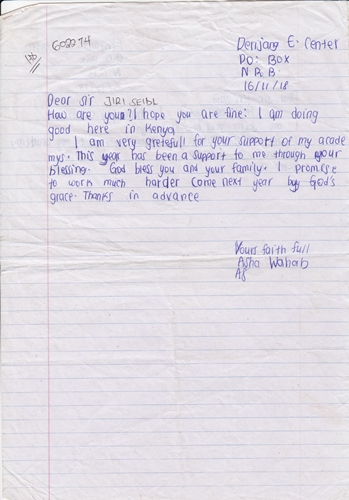 602274
Derijang E. Center
P.O: BOX
N R B
16/11/18
Dear sir JIRI SEIBL
How are your? I hope you are fine: I am doing
good here in Kenya
I am very gretefull for your support of my acade
mys. This year has been a support to me through your
blessing. God bless you and your family. I promise
to work much harder come next year by God's
grace. Thanks in advance
Yours faith full
Asha Wahab
As